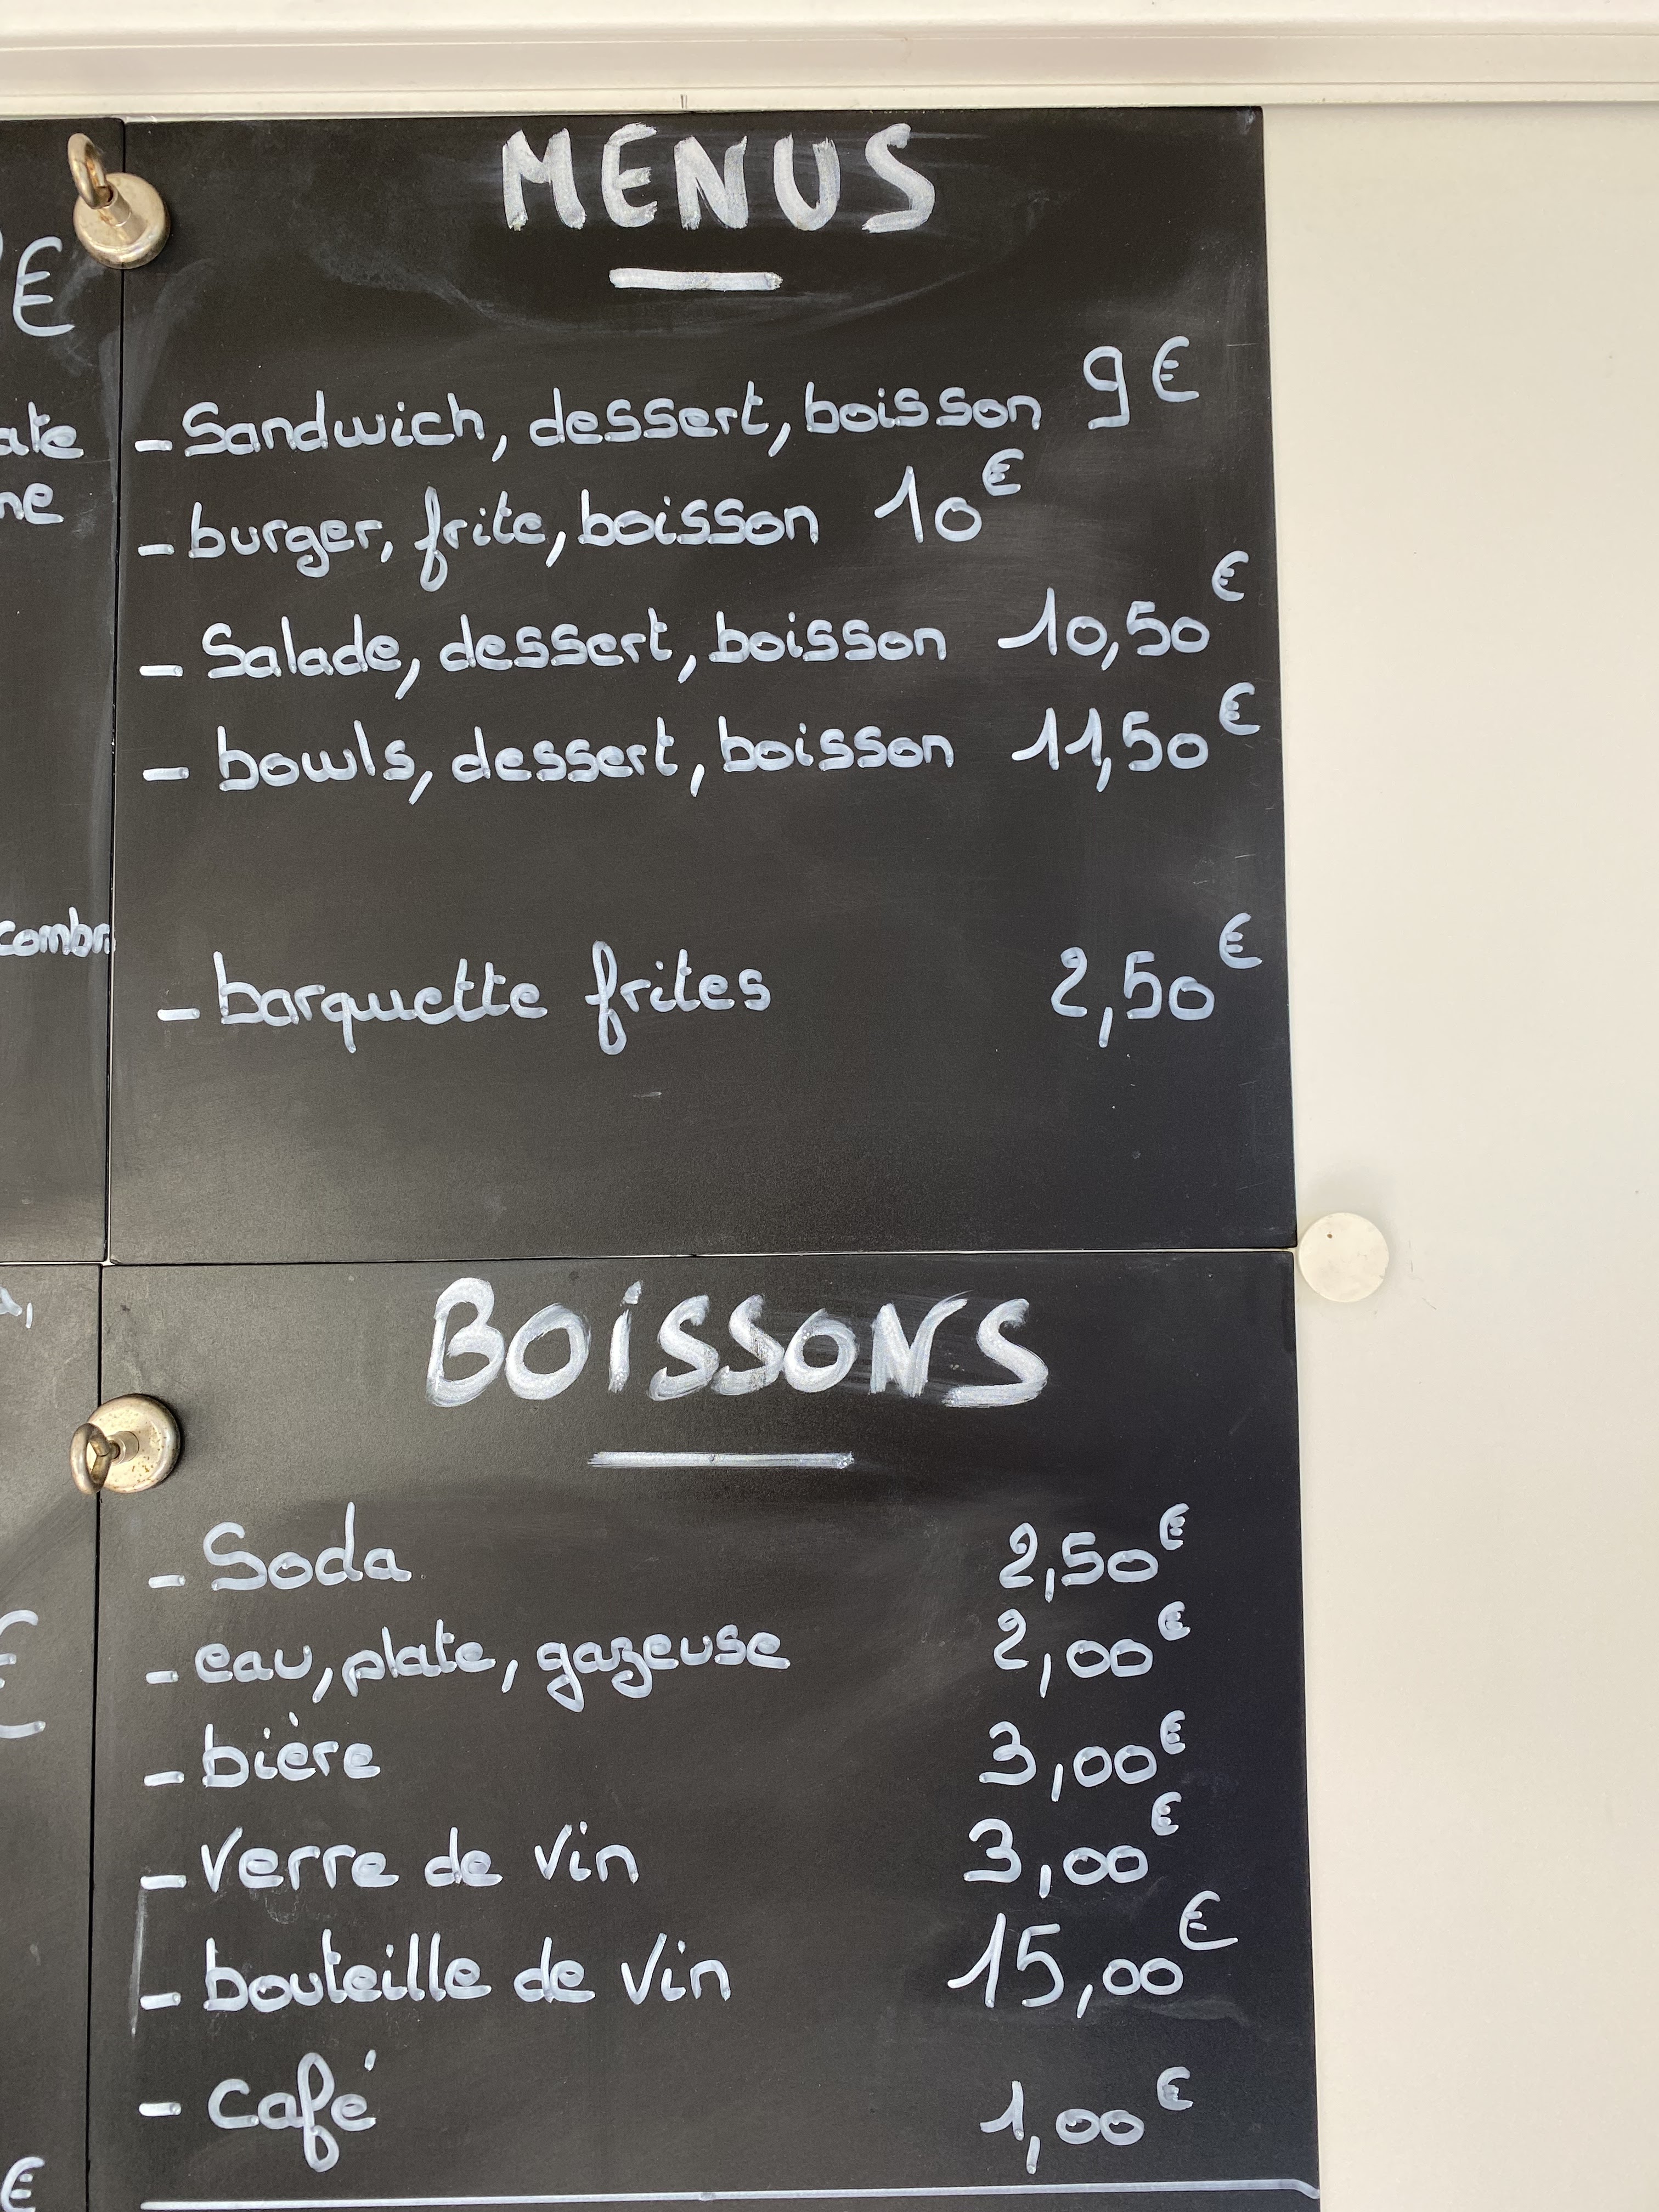 €
ate
ne
combr
MENUS
- Sandwich, dessert, boisson 9€
- burger, frite, boisson 10€
- Salade, dessert, boisson 10,50€
- bowls, dessert, boisson 11,50€
- barquette frites 2,50€
BOiSSONS
- Soda 2,50€
- eau, plate, gazeuse 2,00€
- bière 3,00€
- Verre de vin 3,00€
- bouteille de Vin 15,00€
- Café 1,00€
€